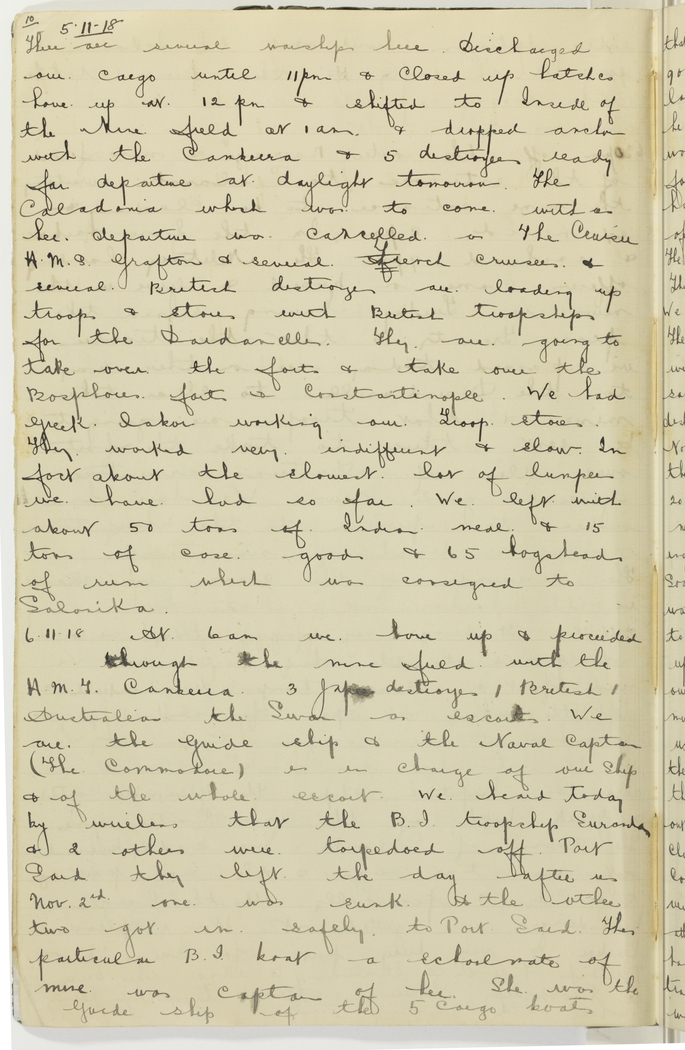 10
5-11-18
There are several warships here. Discharged
our cargo until 11pm & Closed up hatches
hove up at. 12 pm & shifted to Inside of
the Mine field at 1 am. & dropped anchor
with the Canberra & 5 destroyers ready
for departure at daylight tomorrow. The
Caladonia which was to come with us
her departure was cancelled. as The Cruiser
H.M.S. Grafton & several. French cruisers. &
several British destroyers are loading up
troops & stores with British troopships
for the Dardanelles. They are going to
take over the forts & take over the
Bosphorus forts & Constantinople. We had
Greek labor working our Troop stores.
They worked very indifferent & slow. In
fact about the slowest lot of lumpers
we have had so far. We left with
about 50 tons of Indian meal & 15
tons of case goods & 65 hogsheads
of rum which was consigned to
Salonika.
6.11.18 At 6am we hove up & proceeded
through the mine field with the
H.M.T. Canberra. 3 Jap destroyers 1 British 1
Australian the Swan as escorts. We
are the Guide ship & the Naval Captain
(The Commodore) is in charge of our Ship
& of the whole escort. We heard today
by wireless that the B.I. troopship
& 2 others were torpedoed off Port
Said they left the day after us
Nov. 2nd one was sunk & the other
two got in safely to Port Said. This
particular B.I. boat a schoolmate of
mine was captain of her. She was the
Guide ship of the 5 Cargo boats